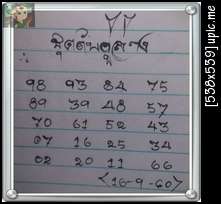 77
98 93 84 75
89 39 48 57
70 61 52 43
07 16 25 34
02 20 11 66
(16-9-60)
[538x539] upic.me